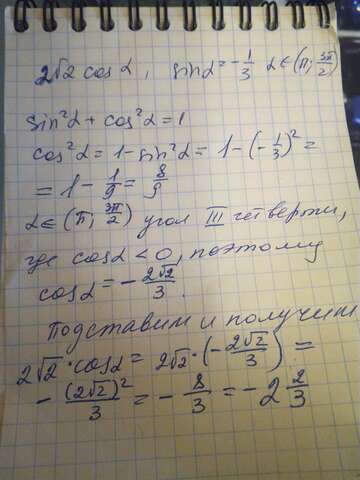 2√2 cos α, sin α = -1/3 α ∈ (π; 3π/2)
sin²α + cos²α = 1
cos²α = 1 - sin²α = 1 - (-1/3)² =
= 1 - 1/9 = 8/9
α ∈ (π; 3π/2) угол III четверти,
где cos α < 0, поэтому
cos α = - 2√2/3.
Подставим и получим
2√2 · cos α = 2√2 · (- 2√2/3) =
- (2√2)²/3 = - 8/3 = - 2 2/3